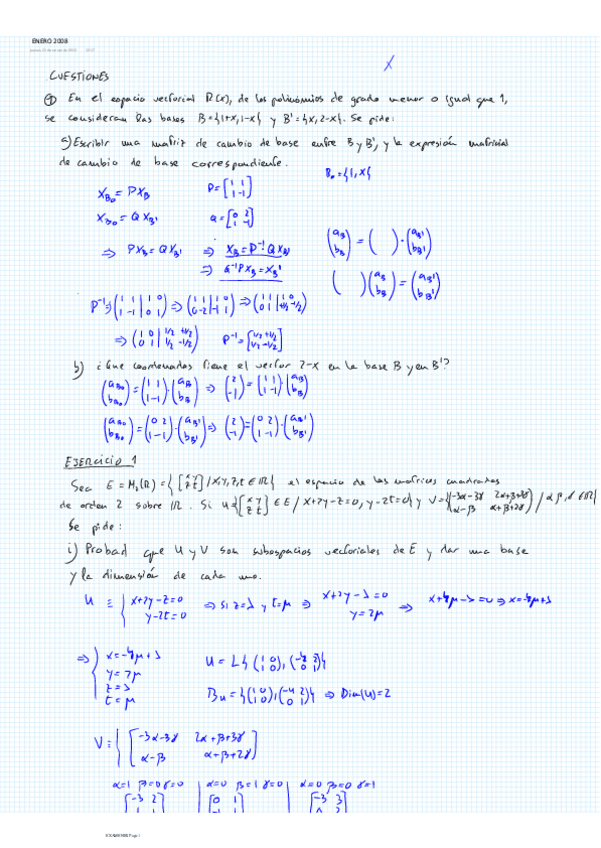 ENERO 2008
CUESTIONES
① En el espacio vectorial P₁(x), de los polinomios de grado menor o igual que 1,
se consideran las bases B={1+x,1-x} y B'={x,2-x}. Se pide:
a) Escribir una matriz de cambio de base entre B y B', y la expresión matricial
de cambio de base correspondiente.
B₀={1,x}
X_B₀ = P X_B   P=[1 1; 1 -1]
X_B₀ = Q X_B'   Q=[0 2; 1 -1]
⇒ P X_B = Q X_B' ⇒ X_B = P⁻¹ Q X_B'
⇒ Q⁻¹ P X_B = X_B'
(a_B; b_B) = ( )·(a_B'; b_B')
( )(a_B; b_B) = (a_B'; b_B')
P⁻¹ ⇒ (1 1 | 1 0; 1 -1 | 0 1) ⇒ (1 1 | 1 0; 0 -2 | -1 1) ⇒ (1 1 | 1 0; 0 1 | +1/2 -1/2)
⇒ (1 0 | 1/2 +1/2; 0 1 | 1/2 -1/2)   P⁻¹=[1/2 +1/2; 1/2 -1/2]
b) ¿Que coordenadas tiene el vector 2-x en la base B y en B'?
(a_B₀; b_B₀) = (1 1; 1 -1)·(a_B; b_B) ⇒ (2; -1) = (1 1; 1 -1)·(a_B; b_B)
(a_B₀; b_B₀) = (0 2; 1 -1)·(a_B'; b_B') ⇒ (2; -1) = (0 2; 1 -1)·(a_B'; b_B')
EJERCICIO 1
Sea E = M₂(ℝ) = { [x y; z t] / x,y,z,t ∈ ℝ } el espacio de las matrices cuadradas
de orden 2 sobre ℝ. Si U={[x y; z t] ∈ E / x+2y-z=0, y-2t=0} y V={(-3α-3γ 2α+β+3γ; α-β α+β+2γ) / α,β,γ ∈ ℝ}
Se pide:
i) Probad que U y V son subespacios vectoriales de E y dar una base
y la dimensión de cada uno.
U ≡ { x+2y-z=0; y-2t=0 ⇒ Si z=λ y t=μ ⇒ x+2y-λ=0; y=2μ ⇒ x+4μ-λ=0 ⇒ x=-4μ+λ
⇒ { x=-4μ+λ
y=2μ
z=λ
t=μ
U = L{(1 0; 1 0),(-4 2; 0 1)}
B_U = {(1 0; 1 0),(-4 2; 0 1)} ⇒ Dim(U)=2
V ≡ { [-3α-3γ 2α+β+3γ; α-β α+β+2γ]
α=1 β=0 γ=0 | α=0 β=1 γ=0 | α=0 β=0 γ=1
[-3 2 | [0 1 | [-3 3